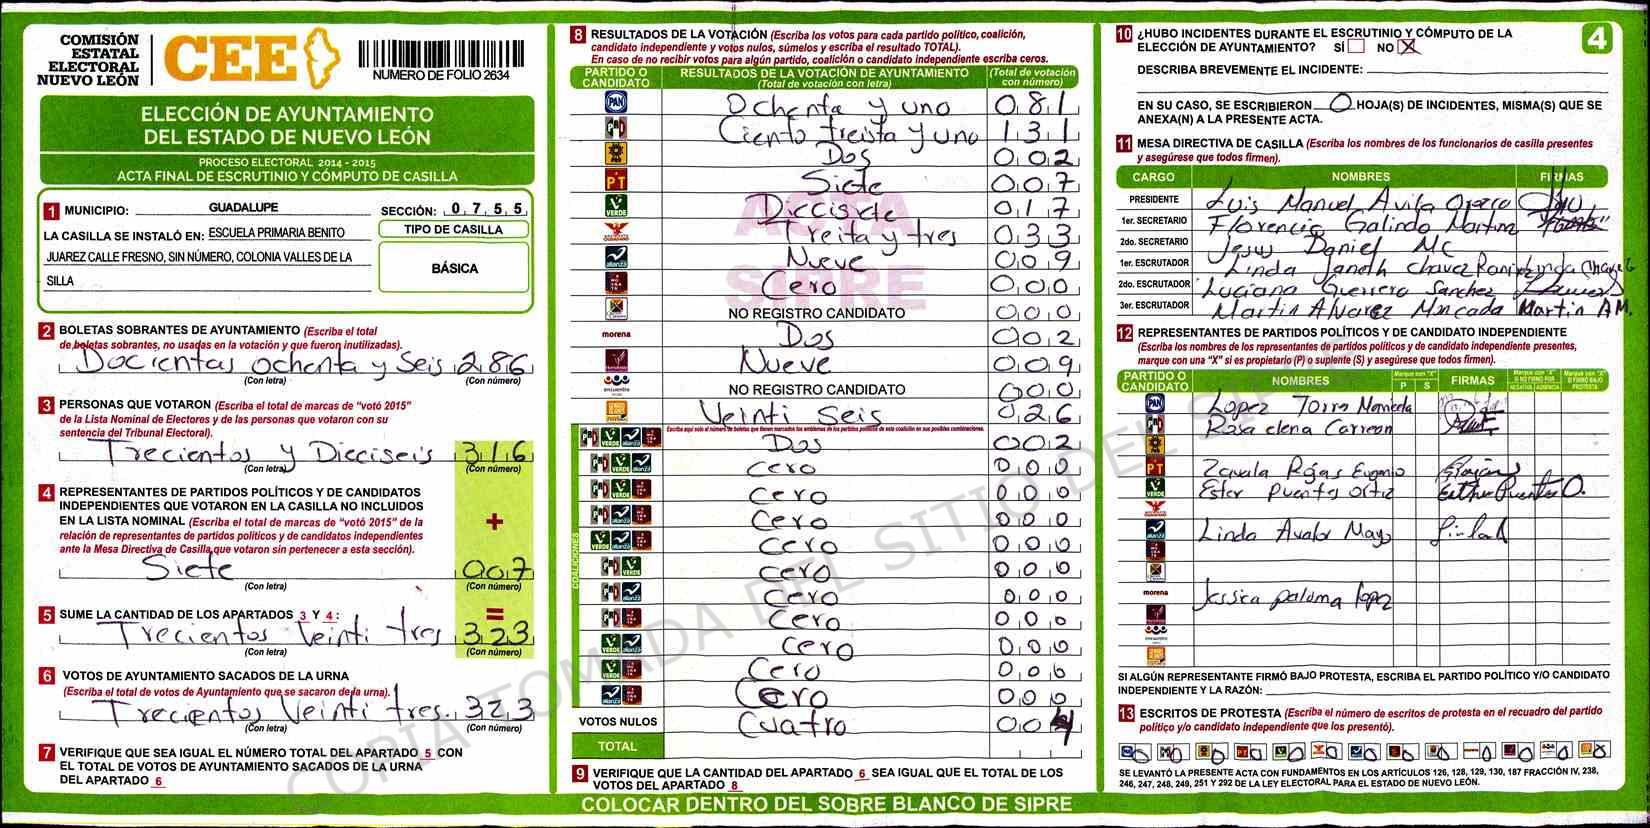 COMISIÓN
ESTATAL
ELECTORAL
NUEVO LEÓN
CEE
NUMERO DE FOLIO 2634
ELECCIÓN DE AYUNTAMIENTO
DEL ESTADO DE NUEVO LEÓN
PROCESO ELECTORAL 2014 - 2015
ACTA FINAL DE ESCRUTINIO Y CÓMPUTO DE CASILLA
1 MUNICIPIO: GUADALUPE SECCIÓN: 0 7 5 5
LA CASILLA SE INSTALÓ EN: ESCUELA PRIMARIA BENITO
JUAREZ CALLE FRESNO, SIN NÚMERO, COLONIA VALLES DE LA
SILLA
TIPO DE CASILLA
BÁSICA
2 BOLETAS SOBRANTES DE AYUNTAMIENTO (Escriba el total
de boletas sobrantes, no usadas en la votación y que fueron inutilizadas).
Docientas ochenta y Seis 286
(Con letra) (Con número)
3 PERSONAS QUE VOTARON (Escriba el total de marcas de "votó 2015"
de la Lista Nominal de Electores y de las personas que votaron con su
sentencia del Tribunal Electoral).
Trecientos y Dieciseis 316
(Con letra) (Con número)
4 REPRESENTANTES DE PARTIDOS POLÍTICOS Y DE CANDIDATOS
INDEPENDIENTES QUE VOTARON EN LA CASILLA NO INCLUIDOS
EN LA LISTA NOMINAL (Escriba el total de marcas de "votó 2015" de la
relación de representantes de partidos políticos y de candidatos independientes
ante la Mesa Directiva de Casilla que votaron sin pertenecer a esta sección).
+
Siete 007
(Con letra) (Con número)
5 SUME LA CANTIDAD DE LOS APARTADOS 3 Y 4: =
Trecientos Veinti tres 323
(Con letra) (Con número)
6 VOTOS DE AYUNTAMIENTO SACADOS DE LA URNA
(Escriba el total de votos de Ayuntamiento que se sacaron de la urna).
Trecientos Veinti tres. 323
(Con letra) (Con número)
7 VERIFIQUE QUE SEA IGUAL EL NÚMERO TOTAL DEL APARTADO 5 CON
EL TOTAL DE VOTOS DE AYUNTAMIENTO SACADOS DE LA URNA
DEL APARTADO 6
8 RESULTADOS DE LA VOTACIÓN (Escriba los votos para cada partido político, coalición,
candidato independiente y votos nulos, súmelos y escriba el resultado TOTAL).
En caso de no recibir votos para algún partido, coalición o candidato independiente escriba ceros.
PARTIDO O CANDIDATO
RESULTADOS DE LA VOTACIÓN DE AYUNTAMIENTO
(Total de votación con letra)
(Total de votación con número)
PAN Ochenta y uno 081
PRI Ciento treista y uno 131
PRD Dos 002
PT Siete 007
VERDE Diecisiete 017
Treita y tres 033
alianza Nueve 009
Cero 000
NO REGISTRO CANDIDATO 000
morena Dos 002
Nueve 009
encuentro NO REGISTRO CANDIDATO 000
Veinti seis 026
Escriba aquí sólo el número de boletas que tienen marcados los emblemas de los partidos políticos de esta coalición en sus posibles combinaciones.
COALICIONES
PRI VERDE alianza Dos 002
PRI VERDE alianza cero 000
PRI VERDE cero 000
PRI alianza cero 000
VERDE alianza cero 000
PRI VERDE cero 000
PRI alianza cero 000
PRI cero 000
VERDE alianza cero 000
VERDE Cero 000
alianza Cero 000
VOTOS NULOS Cuatro 004
TOTAL
9 VERIFIQUE QUE LA CANTIDAD DEL APARTADO 6 SEA IGUAL QUE EL TOTAL DE LOS
VOTOS DEL APARTADO 8
ACTA
SIPRE
COPIA TOMADA DEL SITIO DEL SIPRE
COLOCAR DENTRO DEL SOBRE BLANCO DE SIPRE
4
10 ¿HUBO INCIDENTES DURANTE EL ESCRUTINIO Y CÓMPUTO DE LA
ELECCIÓN DE AYUNTAMIENTO? SÍ NO X
DESCRIBA BREVEMENTE EL INCIDENTE:
EN SU CASO, SE ESCRIBIERON 0 HOJA(S) DE INCIDENTES, MISMA(S) QUE SE
ANEXA(N) A LA PRESENTE ACTA.
11 MESA DIRECTIVA DE CASILLA (Escriba los nombres de los funcionarios de casilla presentes
y asegúrese que todos firmen).
CARGO NOMBRES FIRMAS
PRESIDENTE Luis Manuel Avila
1er. SECRETARIO Florencio Galindo
2do. SECRETARIO Jesus Daniel MC
1er. ESCRUTADOR Linda Janeth Chavez
2do. ESCRUTADOR Luciana Guerrero Sanchez
3er. ESCRUTADOR Martin Alvarez Moncada Martin AM.
12 REPRESENTANTES DE PARTIDOS POLÍTICOS Y DE CANDIDATO INDEPENDIENTE
(Escriba los nombres de los representantes de partidos políticos y de candidato independiente presentes,
marque con una "X" si es propietario (P) o suplente (S) y asegúrese que todos firmen).
PARTIDO O CANDIDATO
NOMBRES
Marque con "X"
P S
FIRMAS
Marque con "X" SI NO FIRMÓ POR
NEGATIVA AUSENCIA
Marque con "X" SI FIRMÓ BAJO PROTESTA
PAN Lopez Torres
Rosa elena Carreon
PT Zavala Rojas Eugenio
VERDE Ester Puentes Ortiz
alianza Linda
morena Jessica paloma lopez
SI ALGÚN REPRESENTANTE FIRMÓ BAJO PROTESTA, ESCRIBA EL PARTIDO POLÍTICO Y/O CANDIDATO
INDEPENDIENTE Y LA RAZÓN:
13 ESCRITOS DE PROTESTA (Escriba el número de escritos de protesta en el recuadro del partido
político y/o candidato independiente que los presentó).
0 0 0 0 0 0 0 0 0 0 0 0 0
SE LEVANTÓ LA PRESENTE ACTA CON FUNDAMENTOS EN LOS ARTÍCULOS 126, 128, 129, 130, 187 FRACCIÓN IV, 238,
246, 247, 248, 249, 251 Y 292 DE LA LEY ELECTORAL PARA EL ESTADO DE NUEVO LEÓN.